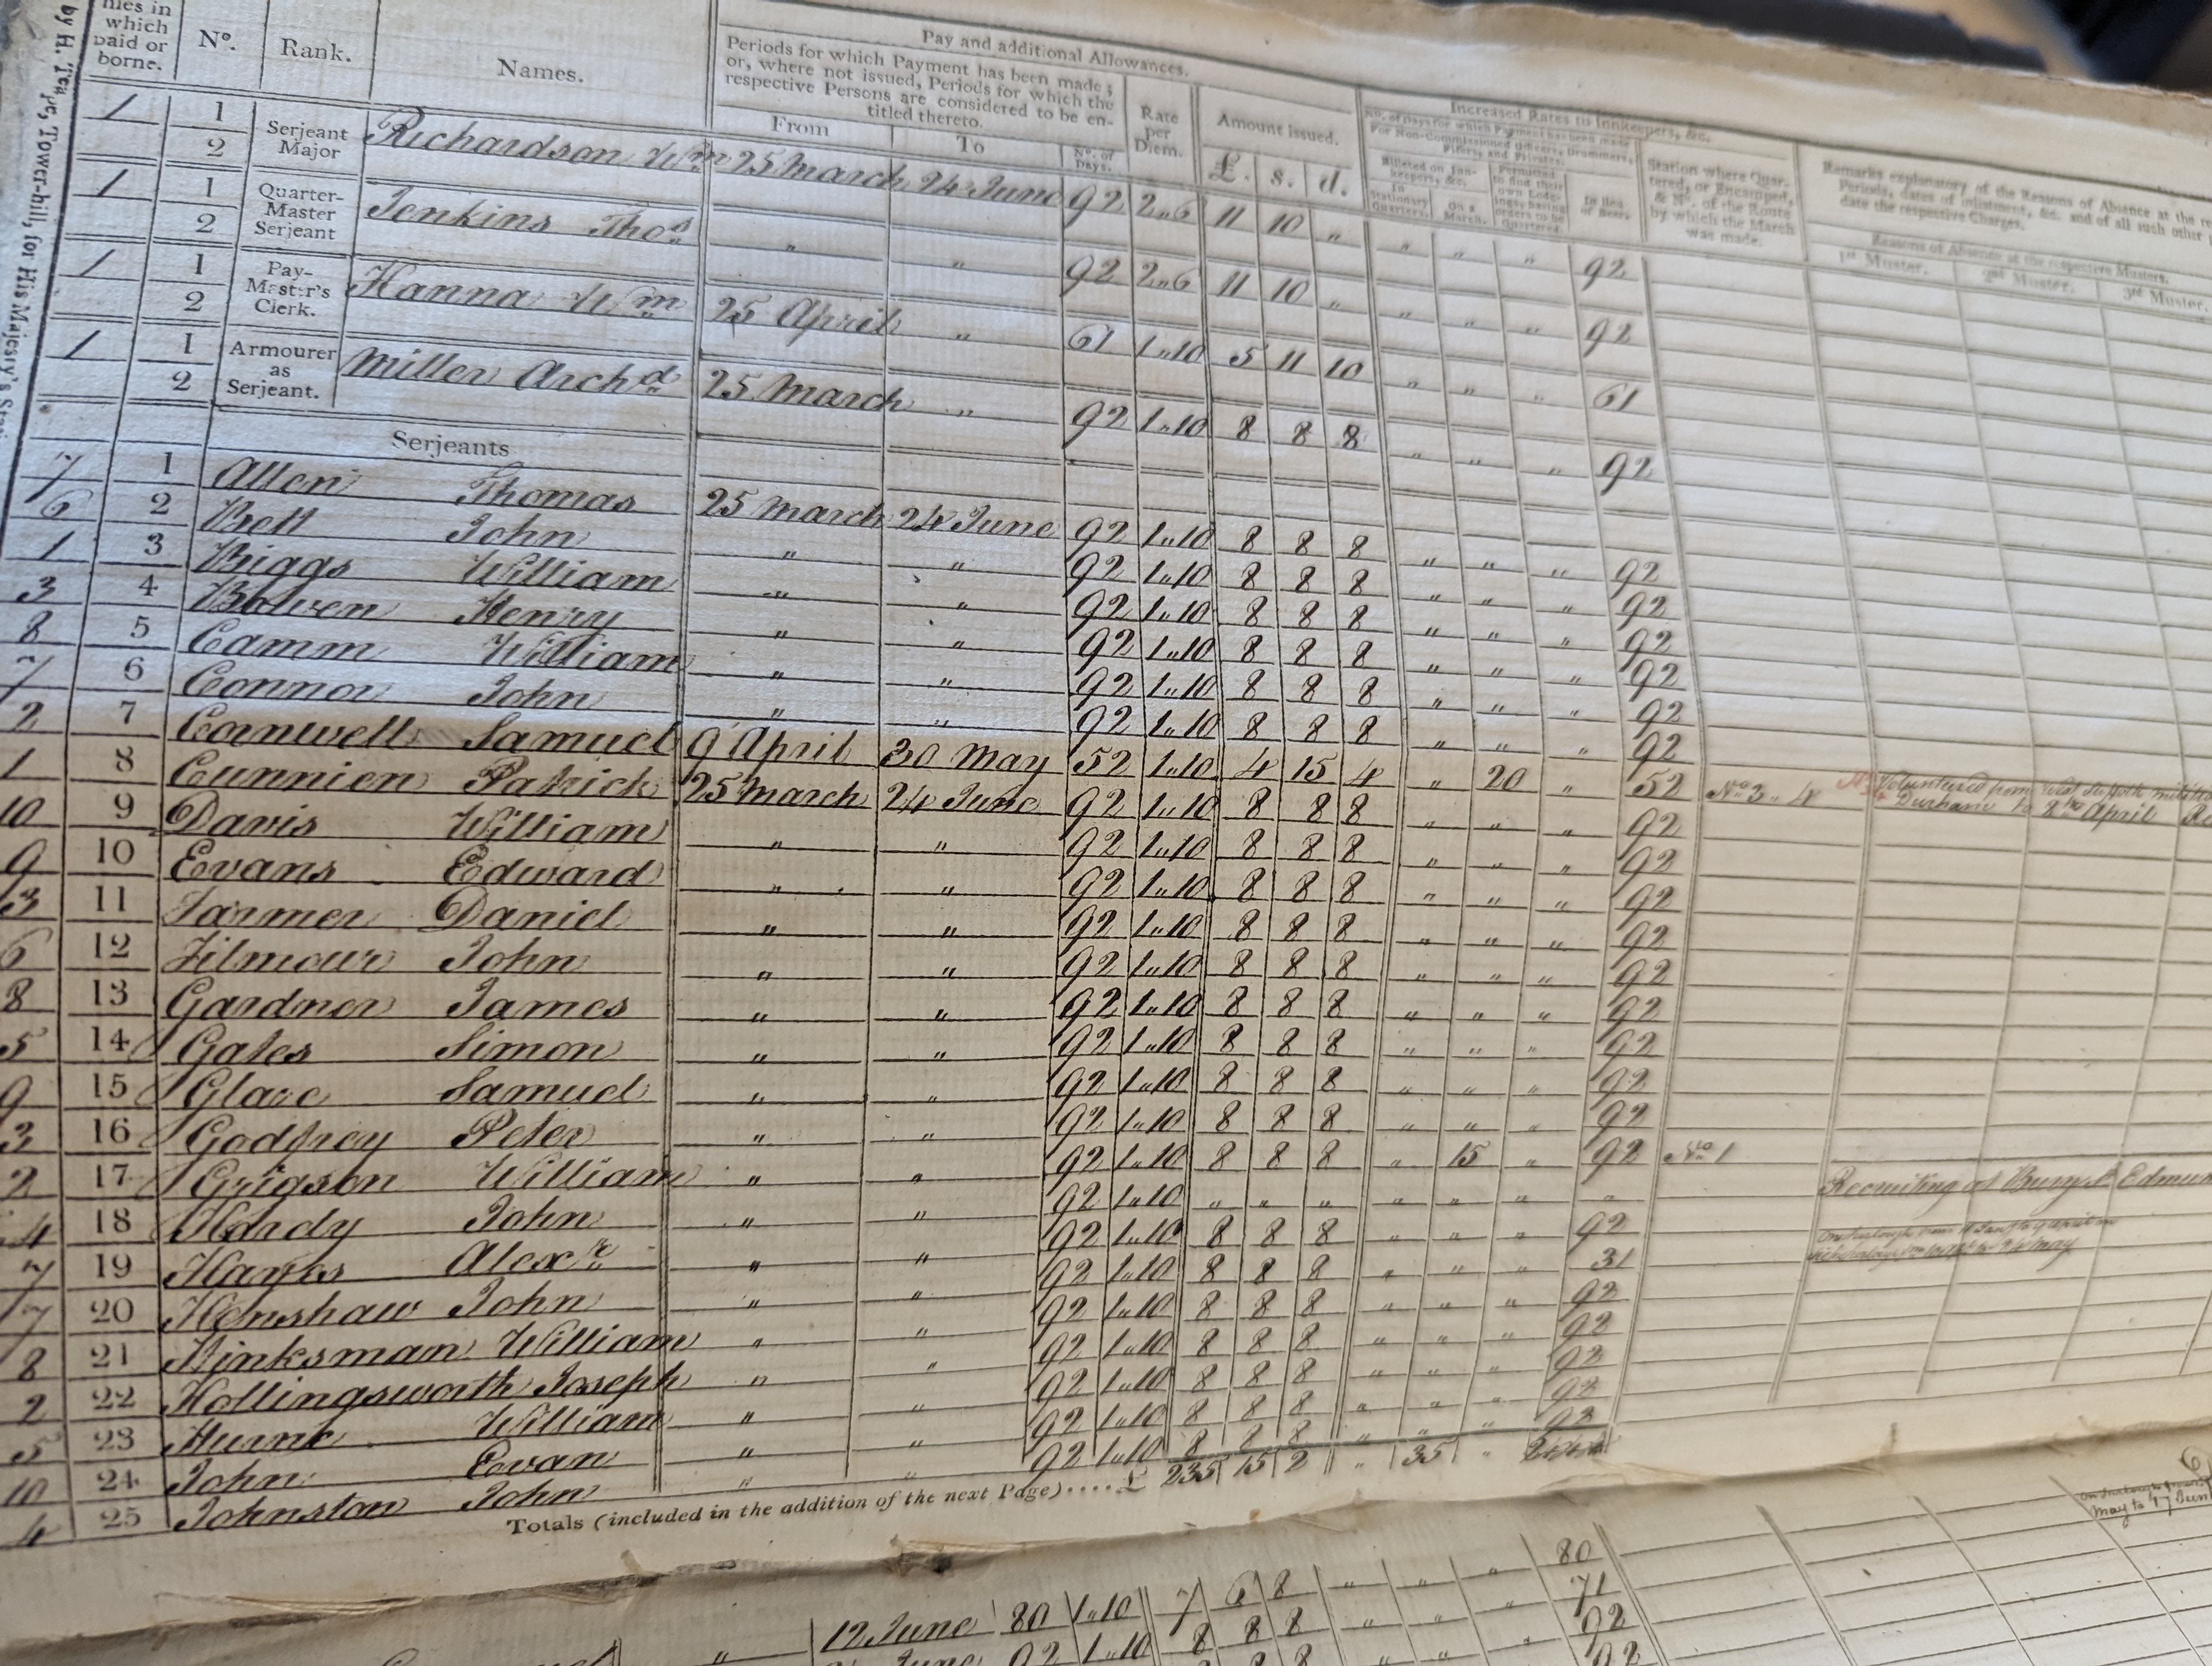 nies in which paid or borne. Nº. Rank. Names.
Pay and additional Allowances.
Periods for which Payment has been made;
or, where not issued, Periods for which the
respective Persons are considered to be en-
titled thereto.
From To Nº. of Days. Rate per Diem. Amount issued. £. s. d.
Increased Rates to Innkeepers, &c.
Nº. of Days for which Payment has been made
For Non-Commissioned Officers, Drummers,
Fifers, and Privates.
Billeted on Inn-keepers, &c. In Stationary Quarters. On a March.
Permitted to find their own Lodgings, having orders to be Quartered.
In lieu of Beer.
Station where Quar-
tered, or Encamped,
& Nº. of the Route
by which the March
was made.
Remarks explanatory of the Reasons of Absence at the re
Periods, dates of inlistment, &c. and of all such other
date the respective Charges.
Reasons of Absence at the respective Musters.
1st Muster. 2nd Muster. 3rd Muster.
by H. Teape, Tower-hill, for His Majesty's Stati
1 1 Serjeant Major Richardson Wm 25 March 24 June 92 2"6 11 10 " " " " 92
2
1 1 Quarter-Master Serjeant Jenkins Thos " " 92 2"6 11 10 " " " " 92
2
1 1 Pay-Master's Clerk. Hanna Wm 25 April " 61 1"10 5 11 10 " " " 61
2
1 1 Armourer as Serjeant. Miller Archd 25 March " 92 1"10 8 8 8 " " " 92
2
Serjeants
7 1 Allen Thomas 25 March 24 June 92 1"10 8 8 8 " " " 92
6 2 Bett John " " 92 1"10 8 8 8 " " " 92
1 3 Biggs William " " 92 1"10 8 8 8 " " " 92
3 4 Bowen Henry " " 92 1"10 8 8 8 " " " 92
8 5 Camm William " " 92 1"10 8 8 8 " " " 92
7 6 Connor John " " 92 1"10 8 8 8 " " " 92
2 7 Cornwell Samuel 9 April 30 May 52 1"10 4 15 4 " 20 " 52 No 3 " 4 Volunteered from West Suffolk Militia
Durham to 8th April
1 8 Cunnien Patrick 25 March 24 June 92 1"10 8 8 8 " " " 92
10 9 Davis William " " 92 1"10 8 8 8 " " " 92
9 10 Evans Edward " " 92 1"10 8 8 8 " " " 92
3 11 Farmer Daniel " " 92 1"10 8 8 8 " " " 92
6 12 Filmour John " " 92 1"10 8 8 8 " " " 92
8 13 Gardner James " " 92 1"10 8 8 8 " " " 92
5 14 Gates Simon " " 92 1"10 8 8 8 " " " 92
9 15 Glare Samuel " " 92 1"10 8 8 8 " " " 92
3 16 Godfrey Peter " " 92 1"10 8 8 8 " " " 92
2 17 Grigson William " " 92 1"10 8 8 8 " 15 " 92 No 1
4 18 Hardy John " " 92 1"10 " " " " " " " Recruiting at Bury St Edmun
7 19 Hayes Alexr " " 92 1"10 8 8 8 " " " 92
7 20 Henshaw John " " 92 1"10 8 8 8 " " " 31
8 21 Hinksman William " " 92 1"10 8 8 8 " " " 92
2 22 Hollingsworth Joseph " " 92 1"10 8 8 8 " " " 92
5 23 Hurne William " " 92 1"10 8 8 8 " " " 92
10 24 John Evan " " 92 1"10 8 8 8 " " " 92
4 25 Johnston John " " 92 1"10 8 8 8 " " " 92
Totals (included in the addition of the next Page).... £ 235 15 2 " 35 "
80
12 June 80 1"10 7 6 8 " " " 71
June 92 1"10 8 8 8 " " " 92
8 8 92
May to 17 Jun